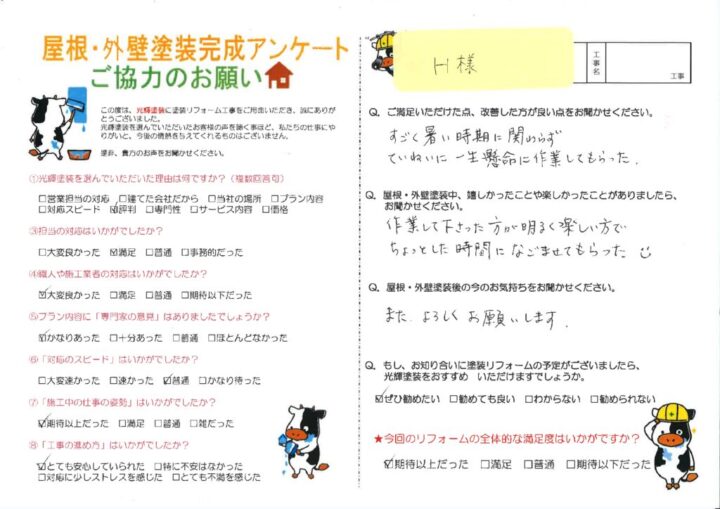 屋根・外壁塗装完成アンケート
ご協力のお願い
この度は、光輝塗装に塗装リフォーム工事をご用命いただき、誠にありがとうございました。
光輝塗装を選んでいただいたお客様の声を聴く事ほど、私たちの仕事にやりがいと、今後の情熱を与えてくれるものはございません。
是非、貴方のお声をお聞かせください。
①光輝塗装を選んでいただいた理由は何ですか?(複数回答可)
□営業担当の対応 □建てた会社だから □当社の場所 □プラン内容
□対応スピード ☑評判 □専門性 □サービス内容 □価格
③担当の対応はいかがでしたか?
□大変良かった ☑満足 □普通 □事務的だった
④職人や施工業者の対応はいかがでしたか?
☑大変良かった □満足 □普通 □期待以下だった
⑤プラン内容に「専門家の意見」はありましたでしょうか?
☑かなりあった □十分あった □普通 □ほとんどなかった
⑥「対応のスピード」はいかがでしたか?
□大変速かった □速かった ☑普通 □かなり待った
⑦「施工中の仕事の姿勢」はいかがでしたか?
☑大変良かった □満足 □普通 □雑だった
⑧「工事の進め方」はいかがでしたか?
☑とても安心していられた □特に不安はなかった
□対応に少しストレスを感じた □とても不満を感じた
H様
工事名
工事
Q. ご満足いただけた点、改善した方が良い点をお聞かせください。
すごく暑い時期に関わらず
ていねいに一生懸命に作業してもらった.
Q. 屋根・外壁塗装中、嬉しかったことや楽しかったことがありましたら、
お聞かせください。
作業して下さった方が明るく楽しい方で
ちょっとした時間になごませてもらった
Q. 屋根・外壁塗装後の今のお気持ちをお聞かせください。
また よろしく お願いします.
Q. もし、お知り合いに塗装リフォームの予定がございましたら、
光輝塗装をおすすめ いただけますでしょうか。
☑ぜひ勧めたい □勧めても良い □わからない □勧められない
★今回のリフォームの全体的な満足度はいかがですか?
☑期待以上だった □満足 □普通 □期待以下だった